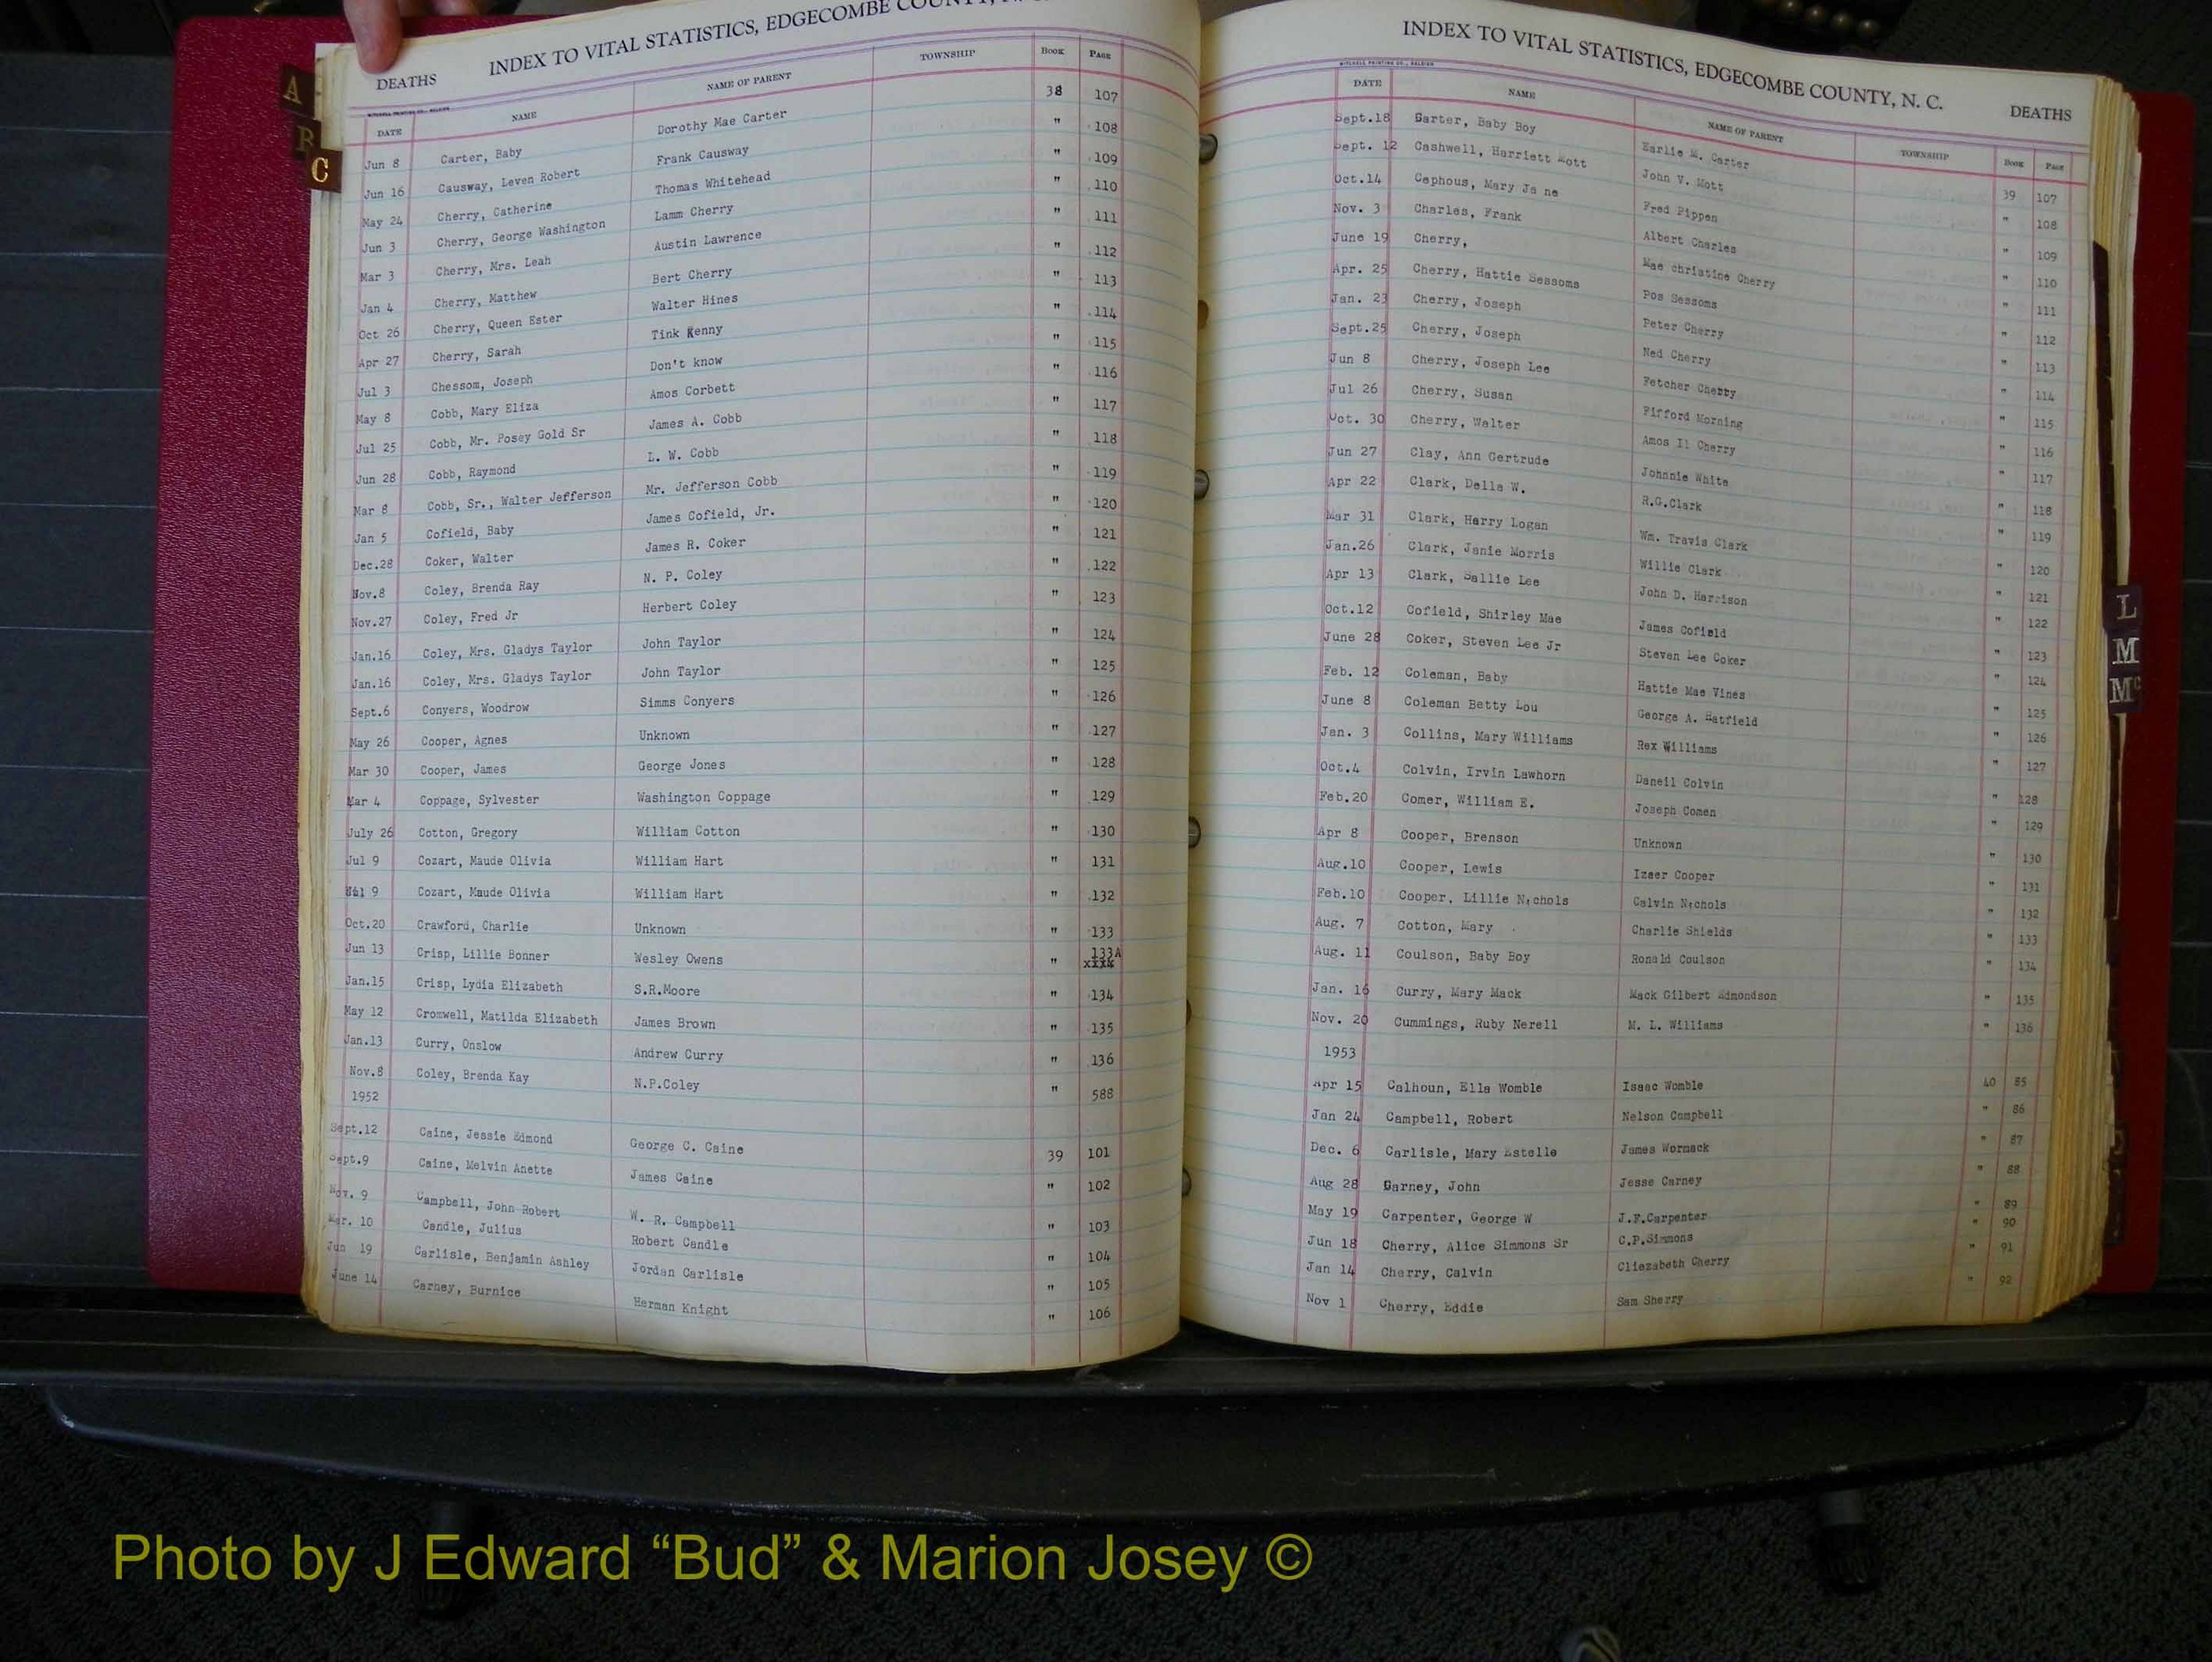 A
B
C
DEATHS INDEX TO VITAL STATISTICS, EDGECOMBE COUNTY,
MITCHELL PRINTING CO., RALEIGH
DATE NAME NAME OF PARENT TOWNSHIP BOOK PAGE
Jun 8 Carter, Baby Dorothy Mae Carter 38 107
Jun 16 Causway, Leven Robert Frank Causway " 108
May 24 Cherry, Catherine Thomas Whitehead " 109
Jun 3 Cherry, George Washington Lamm Cherry " 110
Mar 3 Cherry, Mrs. Leah Austin Lawrence " 111
Jan 4 Cherry, Matthew Bert Cherry " 112
Oct 26 Cherry, Queen Ester Walter Hines " 113
Apr 27 Cherry, Sarah Tink Kenny " 114
Jul 3 Chessom, Joseph Don't know " 115
May 8 Cobb, Mary Eliza Amos Corbett " 116
Jul 25 Cobb, Mr. Posey Gold Sr James A. Cobb " 117
Jun 28 Cobb, Raymond L. W. Cobb " 118
Mar 8 Cobb, Sr., Walter Jefferson Mr. Jefferson Cobb " 119
Jan 5 Cofield, Baby James Cofield, Jr. " 120
Dec.28 Coker, Walter James R. Coker " 121
Nov.8 Coley, Brenda Ray N. P. Coley " 122
Nov.27 Coley, Fred Jr Herbert Coley " 123
Jan.16 Coley, Mrs. Gladys Taylor John Taylor " 124
Jan.16 Coley, Mrs. Gladys Taylor John Taylor " 125
Sept.6 Conyers, Woodrow Simms Conyers " 126
May 26 Cooper, Agnes Unknown " 127
Mar 30 Cooper, James George Jones " 128
Mar 4 Coppage, Sylvester Washington Coppage " 129
July 26 Cotton, Gregory William Cotton " 130
Jul 9 Cozart, Maude Olivia William Hart " 131
9 Cozart, Maude Olivia William Hart " 132
Oct.20 Crawford, Charlie Unknown " 133
Jun 13 Crisp, Lillie Bonner Wesley Owens " 133A
Jan.15 Crisp, Lydia Elizabeth S.R.Moore " 134
May 12 Cromwell, Matilda Elizabeth James Brown " 135
Jan.13 Curry, Onslow Andrew Curry " 136
Nov.8 Coley, Brenda Kay N.P.Coley " 588
1952
Sept.12 Caine, Jessie Edmond George C. Caine 39 101
Sept.9 Caine, Melvin Anette James Caine " 102
Nov. 9 Campbell, John Robert W. R. Campbell " 103
Mar. 10 Candle, Julius Robert Candle " 104
Jun 19 Carlisle, Benjamin Ashley Jordan Carlisle " 105
June 14 Carney, Burnice Herman Knight " 106
INDEX TO VITAL STATISTICS, EDGECOMBE COUNTY, N. C. DEATHS
MITCHELL PRINTING CO., RALEIGH
DATE NAME NAME OF PARENT TOWNSHIP BOOK PAGE
Sept.18 Carter, Baby Boy Earlie M. Carter 39 107
Sept. 12 Cashwell, Harriett Mott John V. Mott " 108
Oct.14 Cephous, Mary Ja ne Fred Pippen " 109
Nov. 3 Charles, Frank Albert Charles " 110
June 19 Cherry, Mae christine Cherry " 111
Apr. 25 Cherry, Hattie Sessoms Pos Sessoms " 112
Jan. 23 Cherry, Joseph Peter Cherry " 113
Sept.25 Cherry, Joseph Ned Cherry " 114
Jun 8 Cherry, Joseph Lee Fetcher Cherry " 115
Jul 26 Cherry, Susan Fifford Morning " 116
Oct. 30 Cherry, Walter Amos Cherry " 117
Jun 27 Clay, Ann Gertrude Johnnie White " 118
Apr 22 Clark, Della W. R.G.Clark " 119
Mar 31 Clark, Harry Logan Wm. Travis Clark " 120
Jan.26 Clark, Janie Morris Willie Clark " 121
Apr 13 Clark, Sallie Lee John D. Harrison " 122
Oct.12 Cofield, Shirley Mae James Cofield " 123
June 28 Coker, Steven Lee Jr Steven Lee Coker " 124
Feb. 12 Coleman, Baby Hattie Mae Vines " 125
June 8 Coleman Betty Lou George A. Hatfield " 126
Jan. 3 Collins, Mary Williams Rex Williams " 127
Oct.4 Colvin, Irvin Lawhorn Daneil Colvin " 128
Feb.20 Comer, William E. Joseph Comen " 129
Apr 8 Cooper, Brenson Unknown " 130
Aug.10 Cooper, Lewis Izeer Cooper " 131
Feb.10 Cooper, Lillie Nichols Calvin Nichols " 132
Aug. 7 Cotton, Mary Charlie Shields " 133
Aug. 11 Coulson, Baby Boy Ronald Coulson " 134
Jan. 16 Curry, Mary Mack Mack Gilbert Edmondson " 135
Nov. 20 Cummings, Ruby Nerell M. L. Williams " 136
1953
Apr 15 Calhoun, Ella Womble Isaac Womble 40 85
Jan 24 Campbell, Robert Nelson Campbell " 86
Dec. 6 Carlisle, Mary Estelle James Wormack " 87
Aug 28 Carney, John Jesse Carney " 88
May 19 Carpenter, George W J.F.Carpenter " 89
Jun 18 Cherry, Alice Simmons Sr C.P.Simmons " 90
Jan 14 Cherry, Calvin Cliezabeth Cherry " 91
Nov 1 Cherry, Eddie Sam Sherry " 92
L
M
Mc
Photo by J Edward “Bud” & Marion Josey ©